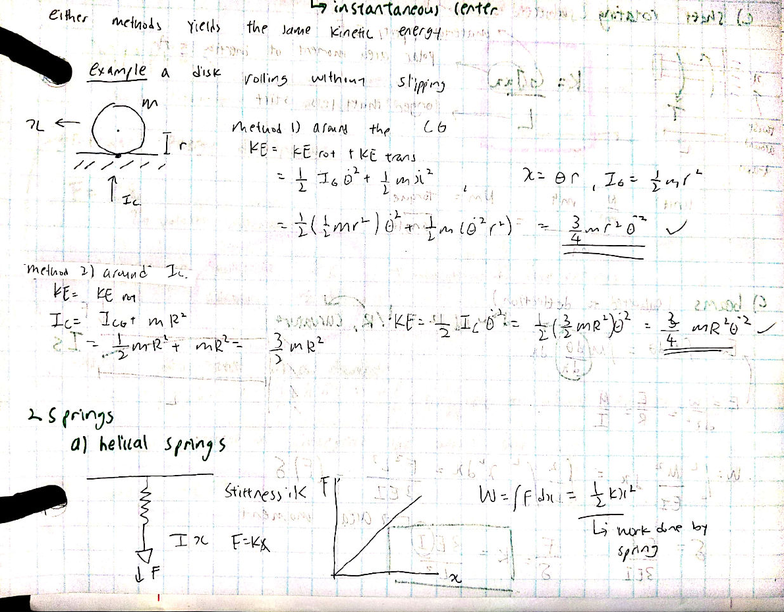 ↳ instantaneous center
either methods yields the same kinetic energy
example a disk rolling without slipping
m
x ←
I r
↑ Ic
method 1) around the CG
KE = KE rot + KE trans
= 1/2 I_G θ̇² + 1/2 mẋ² , x = θr , I_G = 1/2 mr²
= 1/2 (1/2 mr²) θ̇² + 1/2 m (θ̇² r²) = 3/4 mr² θ̇² ✓
method 2) around Ic
KE = KE rot
Ic = I_CG + mR²
= 1/2 mR² + mR² = 3/2 mR²
KE = 1/2 Ic θ̇² = 1/2 (3/2 mR²) θ̇² = 3/4 mR² θ̇² ✓
2 Springs
a) helical springs
Stiffness: k
F
W = ∫F dx = 1/2 kx²
↳ work done by
spring
I x F = kx
↓ F
x